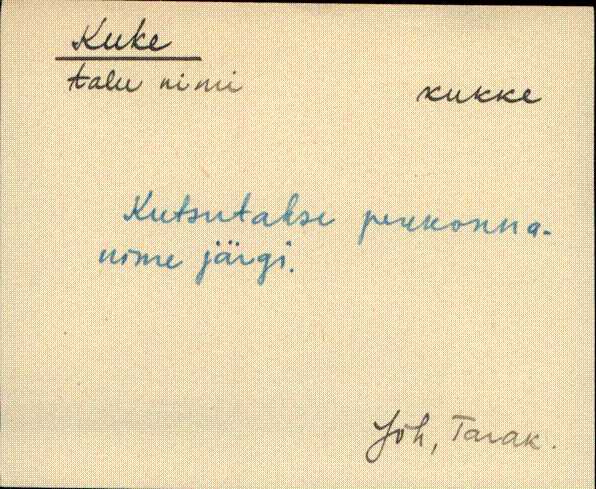 Kuke
talu nimi kukke
Kutsutakse perekonna-
nime järgi.
Jõh, Tarak.